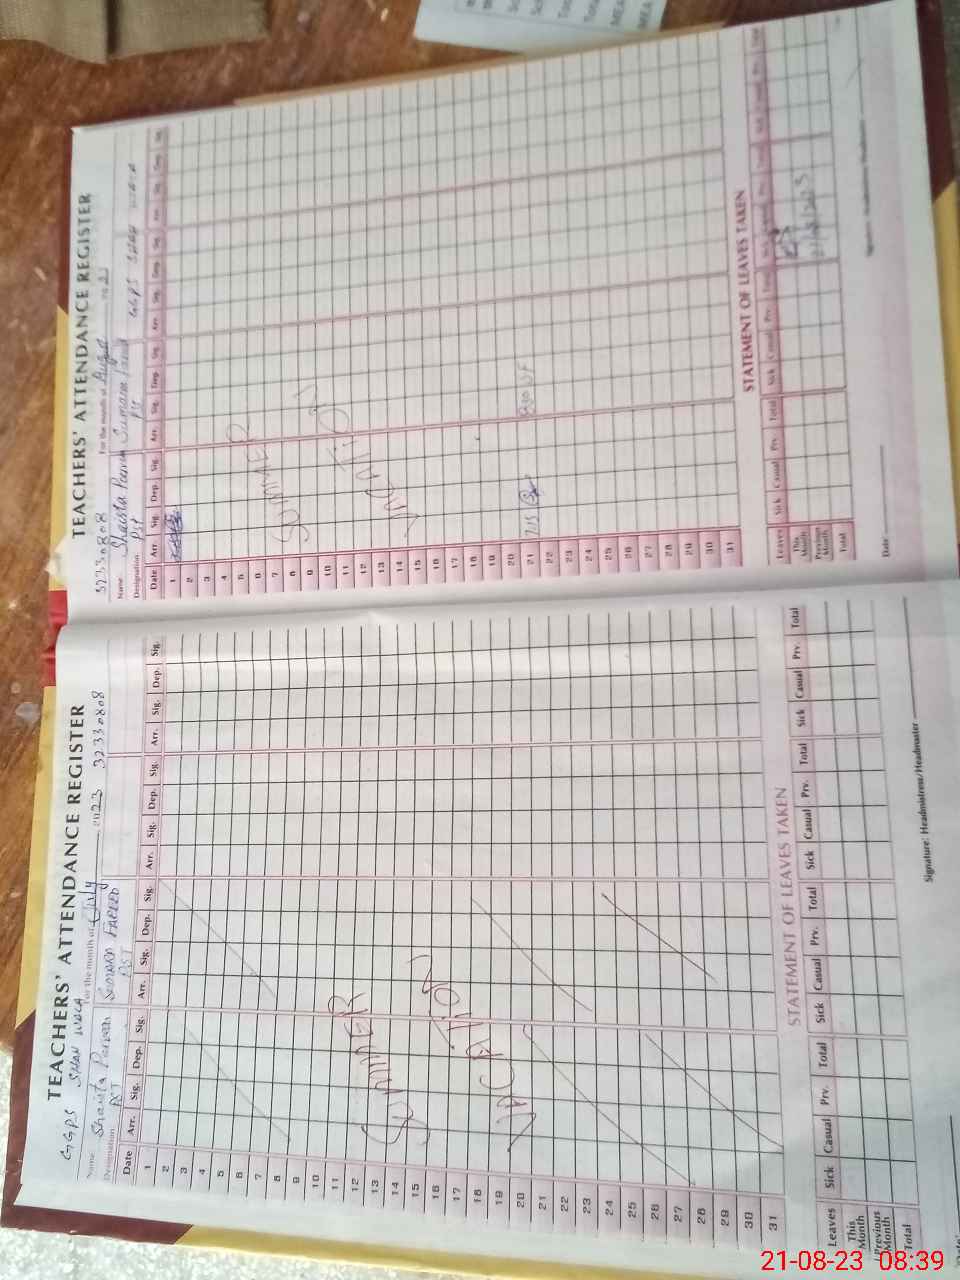 TEACHERS' ATTENDANCE REGISTER
GGPS SHAH WALA For the month of July 2023 32330808
Name: Shaista Parveen FAREED
Designation PST PST
Date Arr. Sig. Dep. Sig. Arr. Sig. Dep. Sig. Arr. Sig. Dep. Sig. Arr. Sig. Dep. Sig.
1
2
3
4
5
6
7
8
9
10
11
12
13
14
15
16
17
18
19
20
21
22
23
24
25
26
27
28
29
30
31
SUMMER
VACATION
STATEMENT OF LEAVES TAKEN
Leaves Sick Casual Prv. Total Sick Casual Prv. Total Sick Casual Prv. Total Sick Casual Prv. Total
This Month
Previous Month
Total
Date:
Signature: Headmistress/Headmaster
TEACHERS' ATTENDANCE REGISTER
32330808 For the month of August 2023
Name: Shaista Parveen Sumaira
Designation PST PST GGPS SHAH WALA
Date Arr. Sig. Dep. Sig. Arr. Sig. Dep. Sig. Arr. Sig. Dep. Sig. Arr. Sig. Dep. Sig.
1
2
3
4
5
6
7
8
9
10
11
12
13
14
15
16
17
18
19
20
21 7:15
22
23
24
25
26
27
28
29
30
31
SUMMER
VACATION
STATEMENT OF LEAVES TAKEN
Leaves Sick Casual Prv. Total Sick Casual Prv. Total Sick Casual Prv. Total Sick Casual Prv. Total
This Month
Previous Month
Total
21/8/2023
Date:
21-08-23 08:39